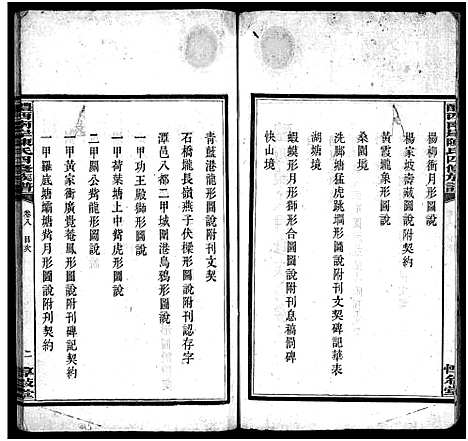 楊梅衝月形圖說
楊家坡壽藏圖說附契約
黃霞壠象形圖說
桑園境
洗腳塘猛虎跳澗形圖說附刊文契碑記華表
湖塘境
蝦蟆形月形獅形合圖圖說附刊息稿罰碑
快山境
青藍港龍形圖說附刊文契
石橋壠長嶺燕子伏樑形圖說附刊認存字
潭邑八都二甲城圍港烏鴉形圖說
二甲關公觜龍形圖說
一甲荷葉塘上中觜虎形圖說
一甲功王殿獅形圖說
一甲黃家衝廣覺菴鳳形圖說附刊碑記契約
一甲羅底塘塥塘觜月形圖說附刊契約
卷八 目次
二
惇敘堂